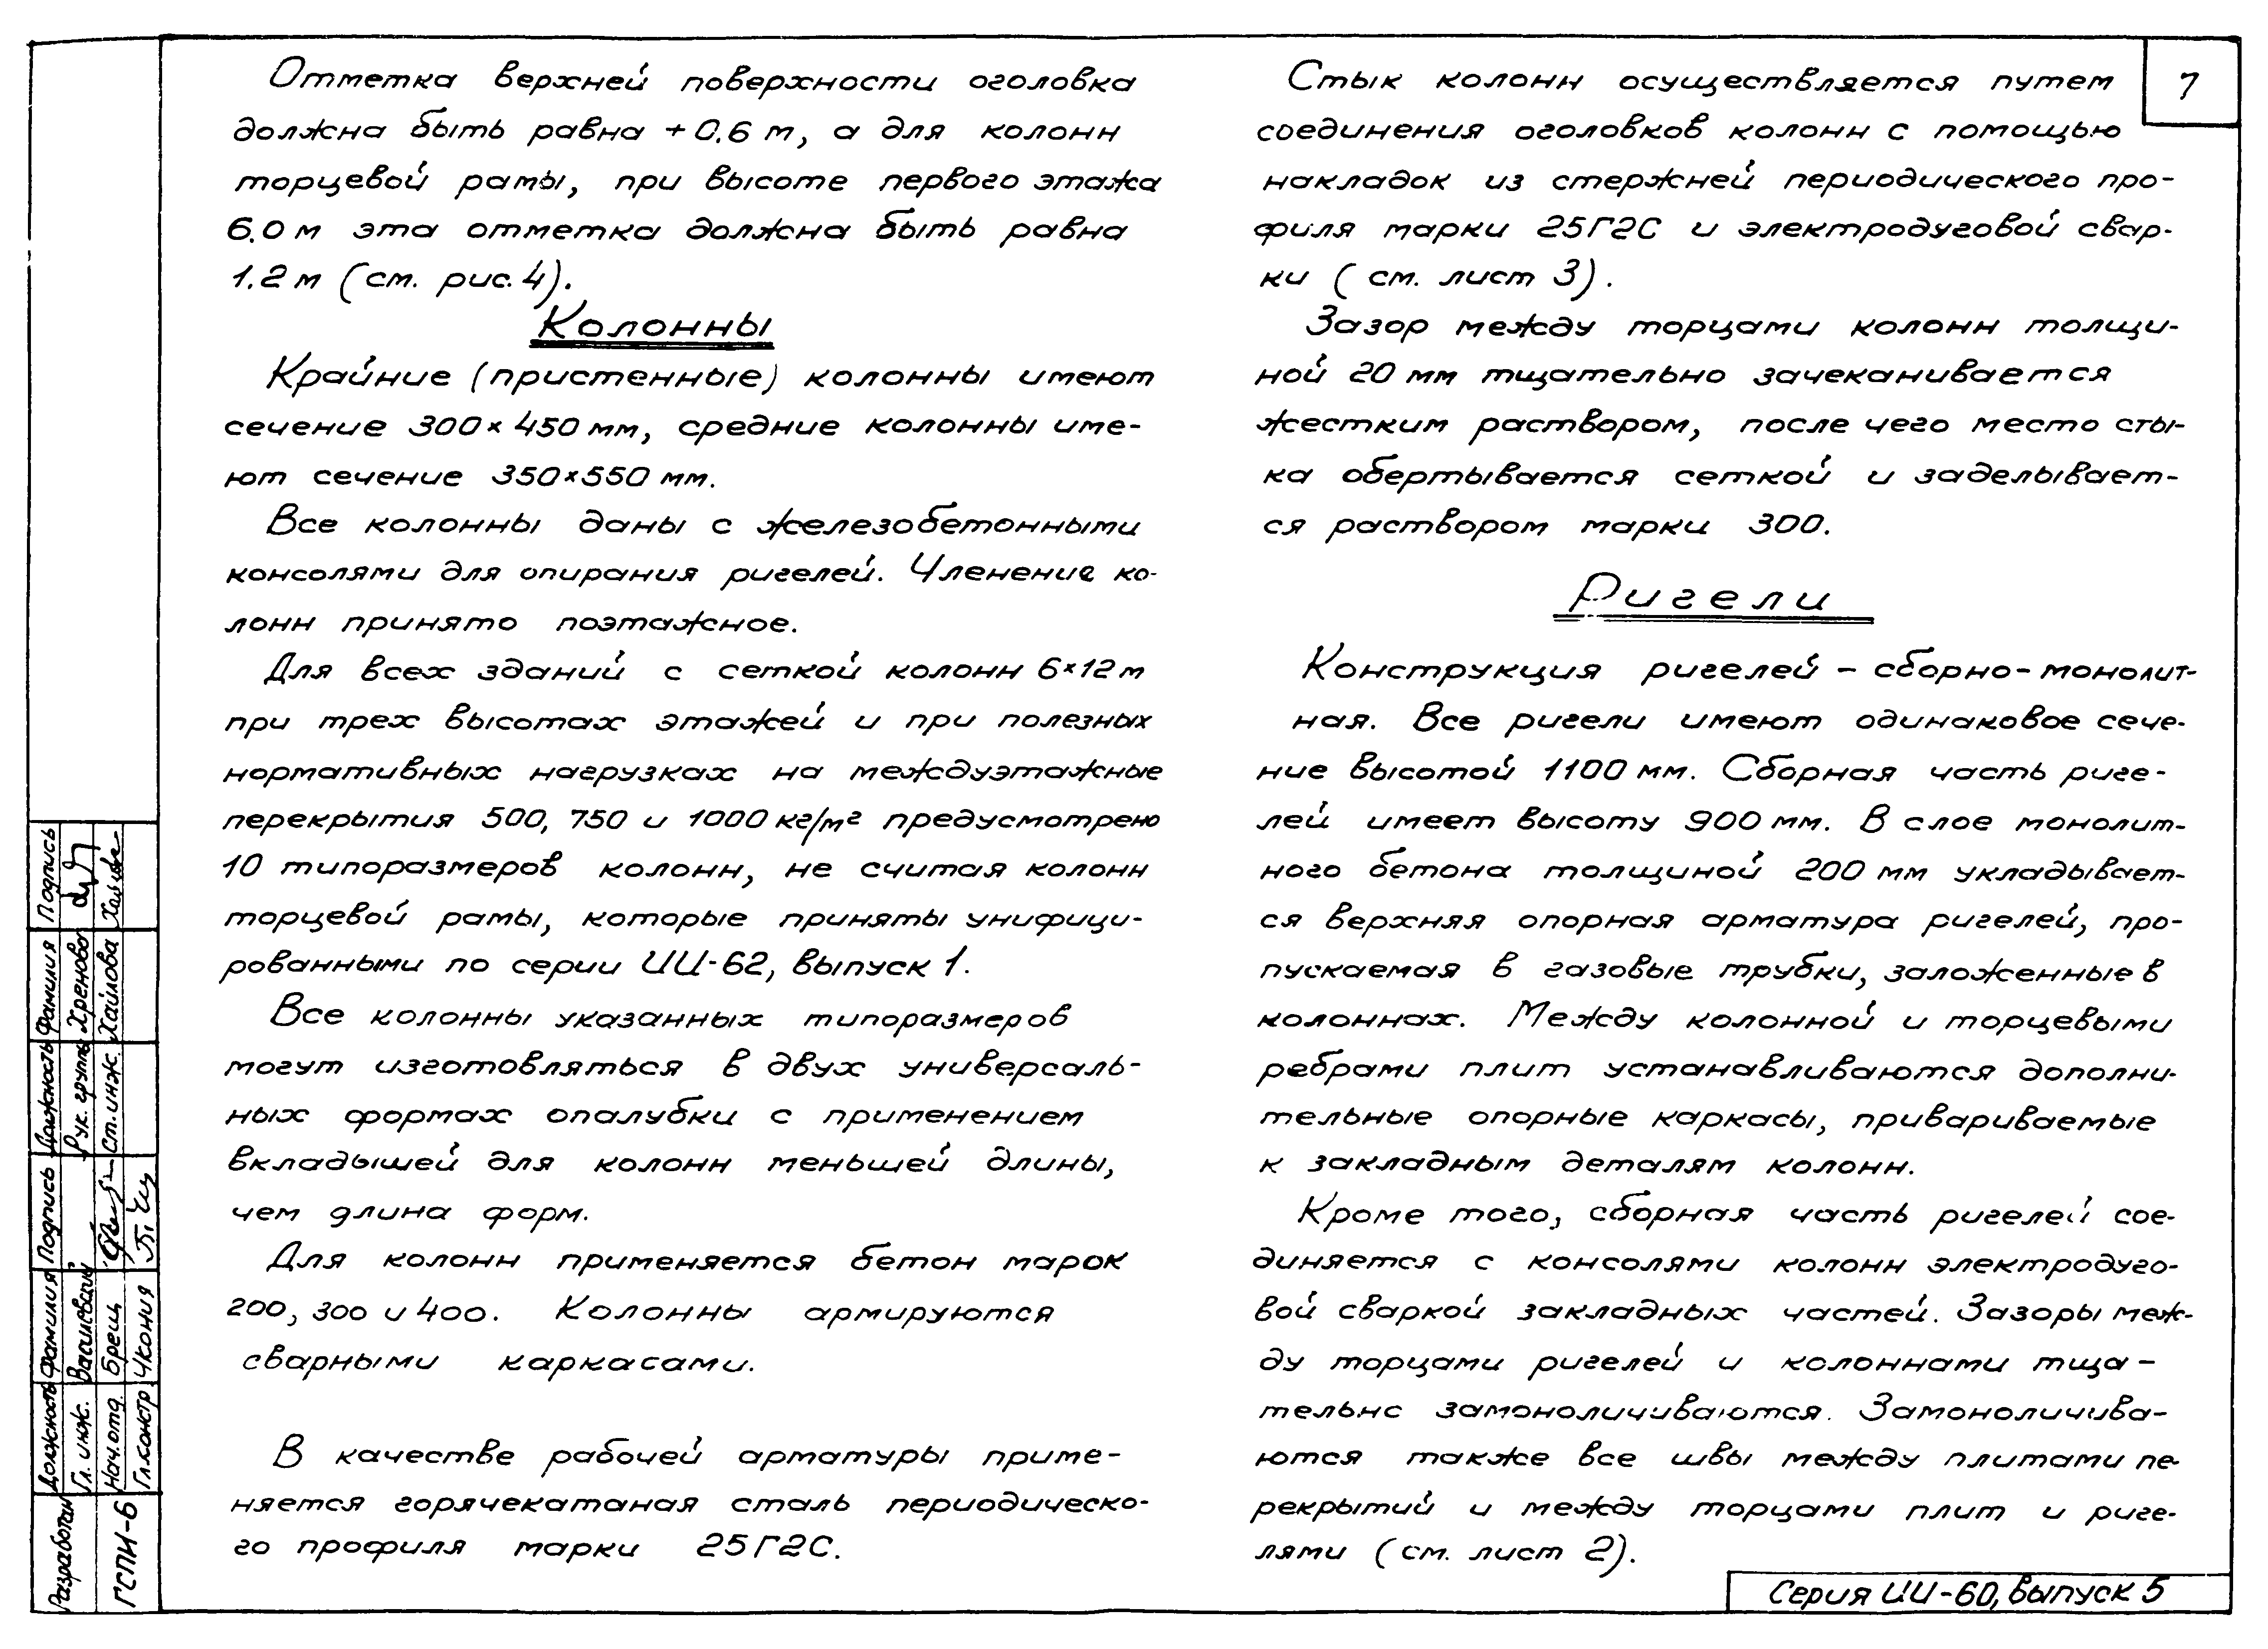 Отметка верхней поверхности оголовка
должна быть равна +0.6 м, а для колонн
торцевой рамы, при высоте первого этажа
6.0 м эта отметка должна быть равна
1.2 м (см. рис. 4).
Колонны
Крайние (пристенные) колонны имеют
сечение 300×450 мм, средние колонны име-
ют сечение 350×550 мм.
Все колонны даны с железобетонными
консолями для опирания ригелей. Членение ко-
лонн принято поэтажное.
Для всех зданий с сеткой колонн 6×12 м
при трех высотах этажей и при полезных
нормативных нагрузках на междуэтажные
перекрытия 500, 750 и 1000 кг/м² предусмотрено
10 типоразмеров колонн, не считая колонн
торцевой рамы, которые приняты унифици-
рованными по серии ИИ-62, выпуск 1.
Все колонны указанных типоразмеров
могут изготовляться в двух универсаль-
ных формах опалубки с применением
вкладышей для колонн меньшей длины,
чем длина форм.
Для колонн применяется бетон марок
200, 300 и 400. Колонны армируются
сварными каркасами.
В качестве рабочей арматуры приме-
няется горячекатаная сталь периодическо-
го профиля марки 25Г2С.
7
Стык колонн осуществляется путем
соединения оголовков колонн с помощью
накладок из стержней периодического про-
филя марки 25Г2С и электродуговой свар-
ки (см. лист 3).
Зазор между торцами колонн толщи-
ной 20 мм тщательно зачеканивается
жестким раствором, после чего место сты-
ка обертывается сеткой и заделывает-
ся раствором марки 300.
Ригели
Конструкция ригелей - сборно-монолит-
ная. Все ригели имеют одинаковое сече-
ние высотой 1100 мм. Сборная часть риге-
лей имеет высоту 900 мм. В слое монолит-
ного бетона толщиной 200 мм укладывает-
ся верхняя опорная арматура ригелей, про-
пускаемая в газовые трубки, заложенные в
колоннах. Между колонной и торцевыми
ребрами плит устанавливаются дополни-
тельные опорные каркасы, привариваемые
к закладным деталям колонн.
Кроме того, сборная часть ригелей сое-
диняется с консолями колонн электродуго-
вой сваркой закладных частей. Зазоры меж-
ду торцами ригелей и колоннами тща-
тельно замоноличиваются. Замоноличива-
ются также все швы между плитами пе-
рекрытий и между торцами плит и риге-
лями (см. лист 2).
Серия ИИ-60, выпуск 5
Разработан
ГСПИ-6
Должность Фамилия Подпись Должность Фамилия Подпись
Гл. инж. Рук. группы
Нач. отд. Бреш Ст. инж. Хайлова
Гл. констр. Чкония